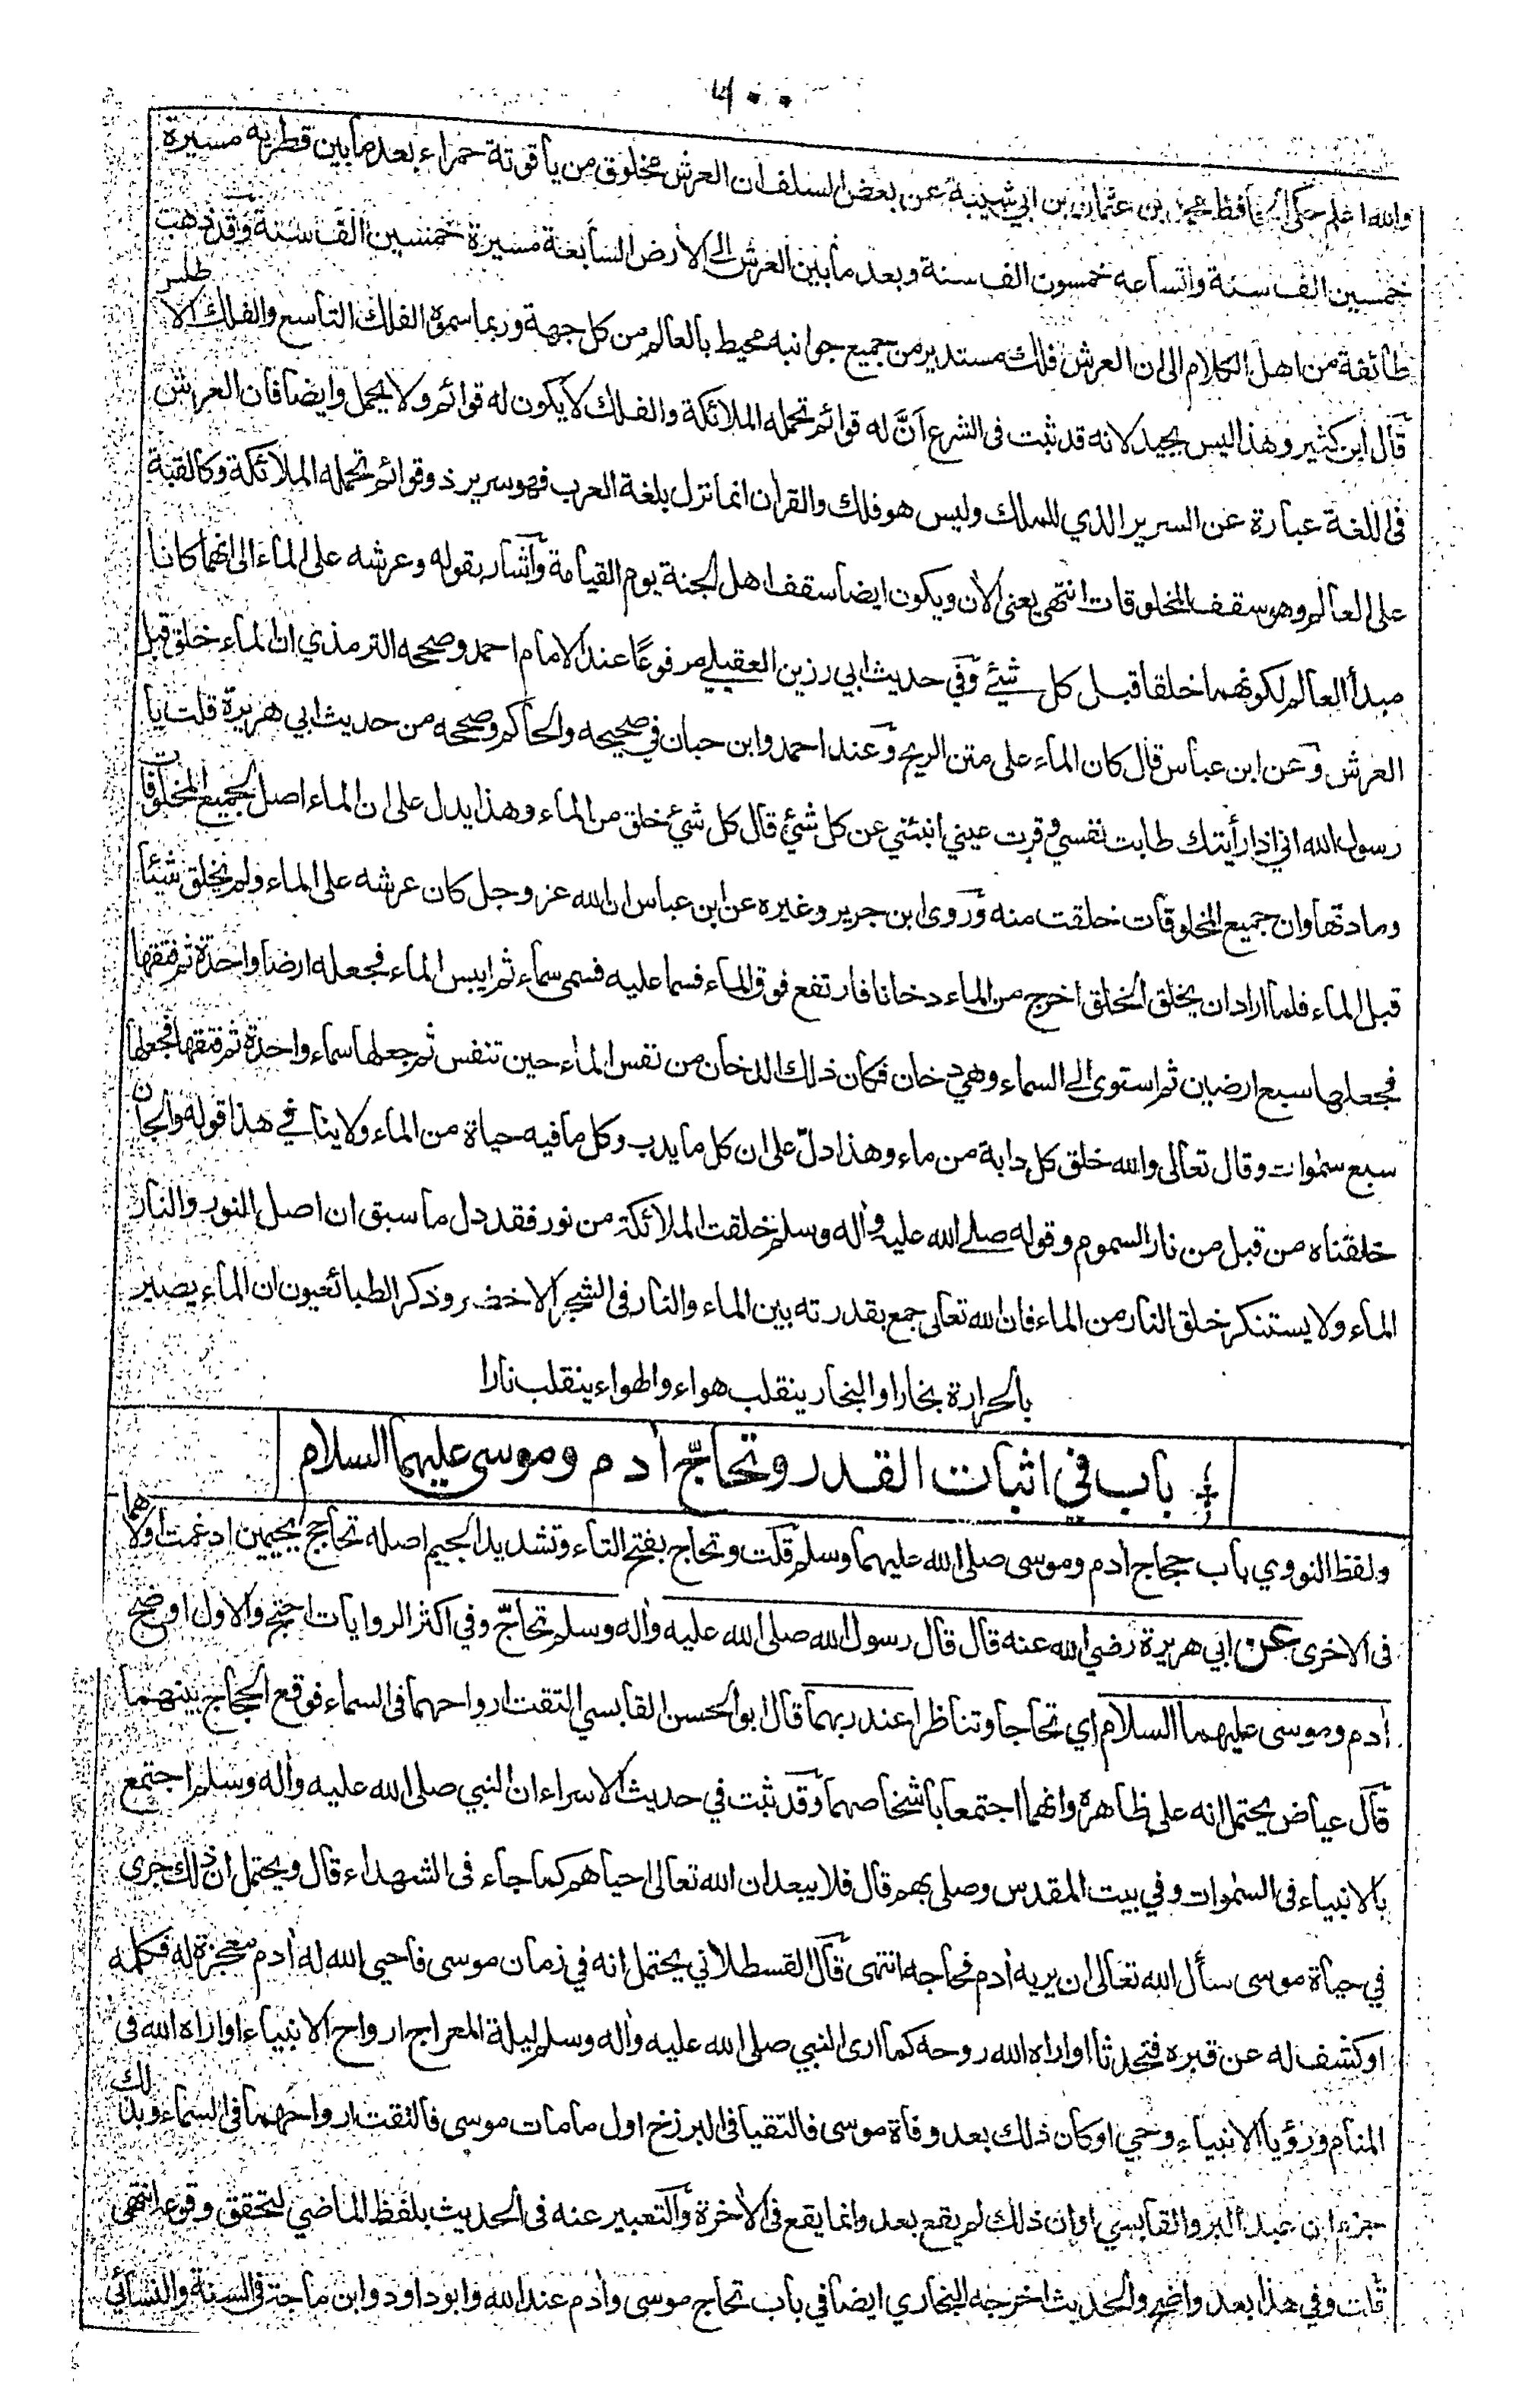 ٧٠٠
والله اعلم حكى الحافظ محمد بن عثمان بن ابي شيبة عن بعض السلف ان العرش مخلوق من ياقوتة حمراء بعد ما بين قطريه مسيرة
خمسين الف سنة واتساعه خمسون الف سنة وبعد ما بين العرش الى الارض السابعة مسيرة خمسين الف سنة وقد ذهبت
طائفة من اهل الكلام الى ان العرش فلك مستدير من جميع جوانبه محيط بالعالم من كل جهة وربما سموه الفلك التاسع والفلك الاطلس
قال ابن كثير وهذا ليس بجيد لانه قد ثبت فى الشرع اَنَّ له قوائم تحمله الملائكة والفلك لا يكون له قوائم ولا يحمل وايضا فان العرش
فى اللغة عبارة عن السرير الذي للملك وليس هو فلك والقرأن انما نزل بلغة العرب فهو سرير ذو قوائم تحمله الملائكة وكالقبة
على العالم وهو سقف المخلوقات انتهى يعنى الأن ويكون ايضا سقف اهل الجنة يوم القيامة وآشار بقوله وعرشه على الماء الى انهما كانا
مبدأ العالم لكونهما خلقا قبل كل شئے وفي حديث ابي رزين العقيلے مرفوعًا عند الامام احمد وصححه الترمذي ان الماء خلق قبل
العرش وعن ابن عباس قال كان الماء على متن الريح وعند احمد وابن حبان في صحيحه والحاكم وصححه من حديث ابي هريرة قلت يا
رسول الله اني اذا رأيتك طابت نفسي وقرت عيني انبئني عن كل شئ قال كل شئ خلق من الماء وهذا يدل على ان الماء اصل لجميع المخلوقات
ومادتها وان جميع المخلوقات خلقت منه وروى ابن جرير وغيره عن ابن عباس ان الله عز وجل كان عرشه على الماء ولم يخلق شيئا
قبل الماء فلما اراد ان يخلق الخلق اخرج من الماء دخانا فارتفع فوق الماء فسما عليه فسمى سماء ثم ايبس الماء فجعله ارضا واحدة ثم فتقها
فجعلها سبع ارضين ثم استوى الى السماء وهي دخان فكان ذلك الدخان من نفس الماء حين تنفس ثم جعلها سماء واحدة ثم فتقها فجعلها
سبع سمٰوات وقال تعالى والله خلق كل دابة من ماء وهذا دلّ على ان كل ما يدب وكل ما فيه حياة من الماء ولا ينافي هذا قوله والجان
خلقناه من قبل من نار السموم وقوله صلے الله عليه وأله وسلم خلقت الملائكة من نور فقد دل ما سبق ان اصل النور والنار
الماء ولا يستنكر خلق النار من الماء فان الله تعالى جمع بقدرته بين الماء والنار فى الشجر الاخضر وذكر الطبائعيون ان الماء يصير
بالحرارة بخارا والبخار ينقلب هواء والهواء ينقلب نارا
باب في اثبات القدر وتحاجّ أدم وموسى عليهما السلام
ولفظ النووي باب حجاج أدم وموسى صلى الله عليهما وسلم قلت وتحاج بفتح التاء وتشديد الجيم اصله تحاجج بجيمين ادغمت اولاهما
فى الاخرى عن ابي هريرة رضي الله عنه قال قال رسول الله صلى الله عليه وأله وسلم تحاجّ وفي اكثر الروايات احتج والاول اوضح
أدم وموسى عليهما السلام اي تحاجا وتناظرا عند ربهما قال ابو الحسن القابسي التقت ارواحهما فى السماء فوقع الحجاج بينهما
قال عياض يحتمل انه على ظاهره وانهما اجتمعا باشخاصهما وقد ثبت في حديث الاسراء ان النبي صلى الله عليه وأله وسلم اجتمع
بالانبياء فى السمٰوات وفي بيت المقدس وصلى بهم قال فلا يبعد ان الله تعالى احياهم كما جاء فى الشهداء قال ويحتمل ان ذلك جرى
في حياة موسى سأل الله تعالى ان يريه أدم فحاجه انتهى قال القسطلاني يحتمل انه في زمان موسى فاحيي الله له أدم معجزة له فكلمه
او كشف له عن قبره فتحدثا او اراه الله روحه كما ارى النبي صلى الله عليه وأله وسلم ليلة المعراج ارواح الانبياء او اراه الله فى
المنام ورؤيا الانبياء وحي او كان ذلك بعد وفاة موسى فالتقيا فى البرزخ اول ما مات موسى فالتقت ارواحهما فى السماء وبذلك
جزم ابن عبد البر والقابسي او ان ذلك لم يقع بعد وانما يقع فى الأخرة والتعبير عنه فى الحديث بلفظ الماضي لتحقق وقوعه انتهى
قلت وفي هذا بعد واضح والحديث اخرجه البخاري ايضا في باب تحاج موسى وأدم عند الله وابو داود وابن ماجة فى السنة والنسائي